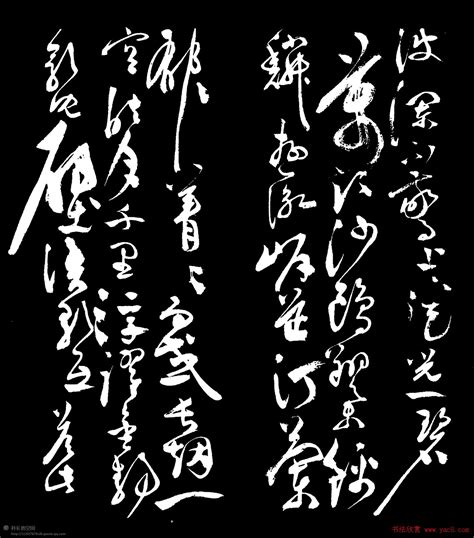 波瀾不驚上下天光一碧
萬頃沙鷗翔集錦
鱗游泳岸芷汀蘭
郁〻菁〻而或長煙一
空皓月千里浮躍金靜
影沉璧漁歌互答此
书法欣赏 www.yac8.com